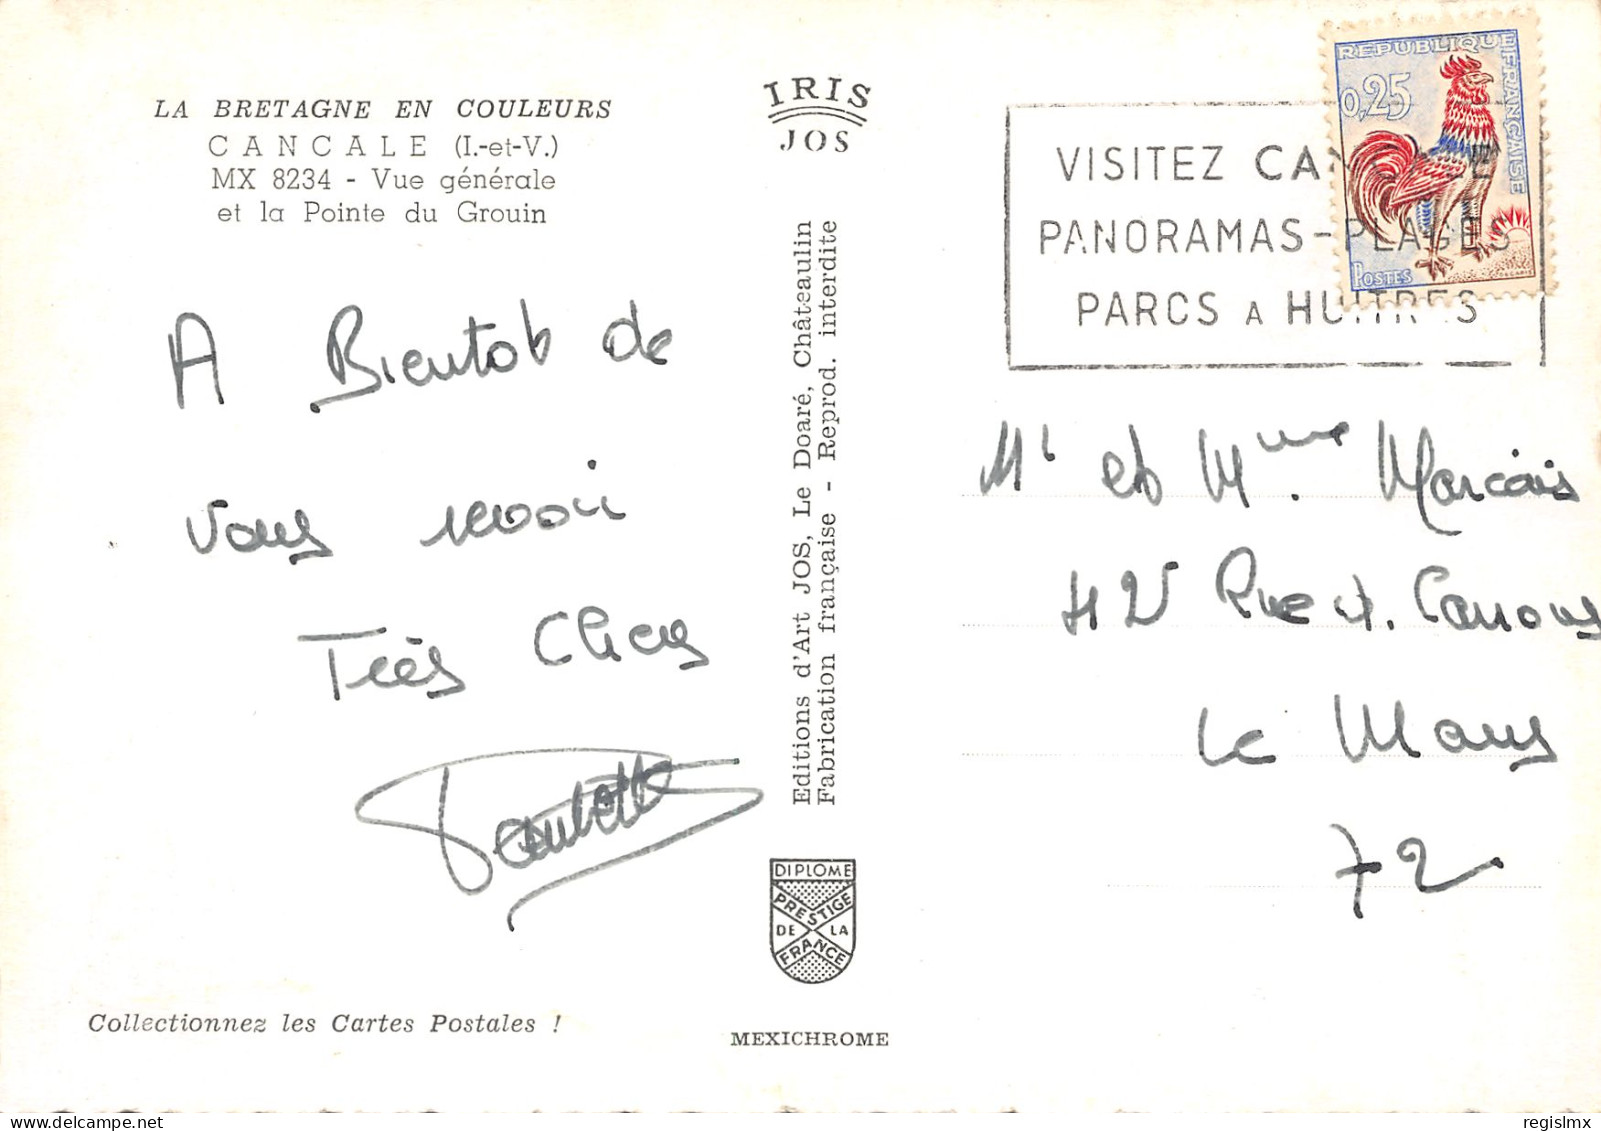 LA BRETAGNE EN COULEURS
CANCALE (I.-et-V.)
MX 8234 - Vue générale
et la Pointe du Grouin
A Bientot de
vous revoir
Très Chers
Paulette
Collectionnez les Cartes Postales !
IRIS
JOS
Editions d'Art JOS, Le Doaré, Châteaulin
Fabrication française - Reprod. interdite
DIPLOME
PRESTIGE
DE LA
FRANCE
MEXICHROME
REPUBLIQUE FRANÇAISE
0,25
POSTES
VISITEZ CANCALE
PANORAMAS-PLAGES
PARCS A HUITRES
Mr et Mme. Marcais
42 Rue
Le Mans
72
regislmx